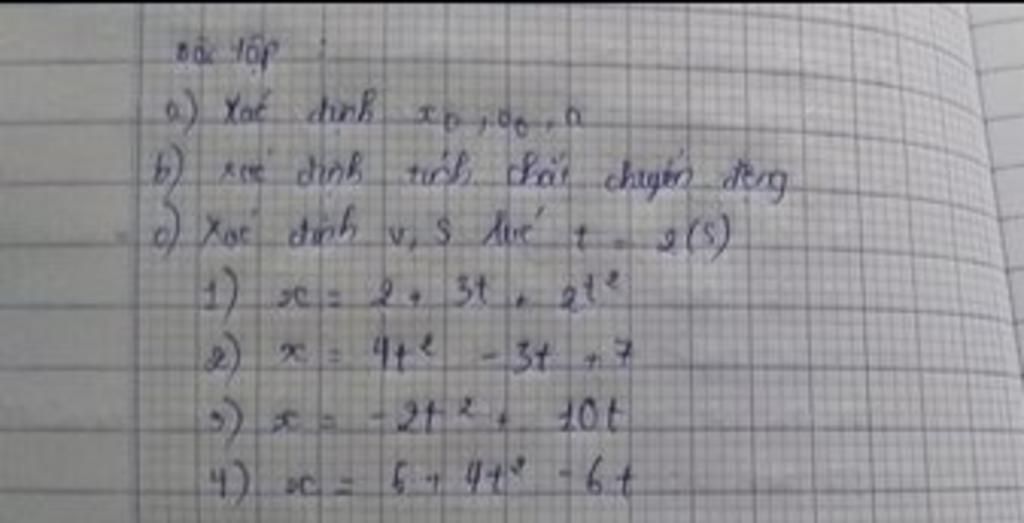 Bài tập :
a) Xác định x₀, v₀, a
b) xác định tính chất chuyển động
c) Xác định v, S lúc t = 2(s)
1) x = 2 + 3t + 2t²
2) x = 4t² - 3t + 7
3) x = -2t² + 10t
4) x = 5 + 4t² - 6t